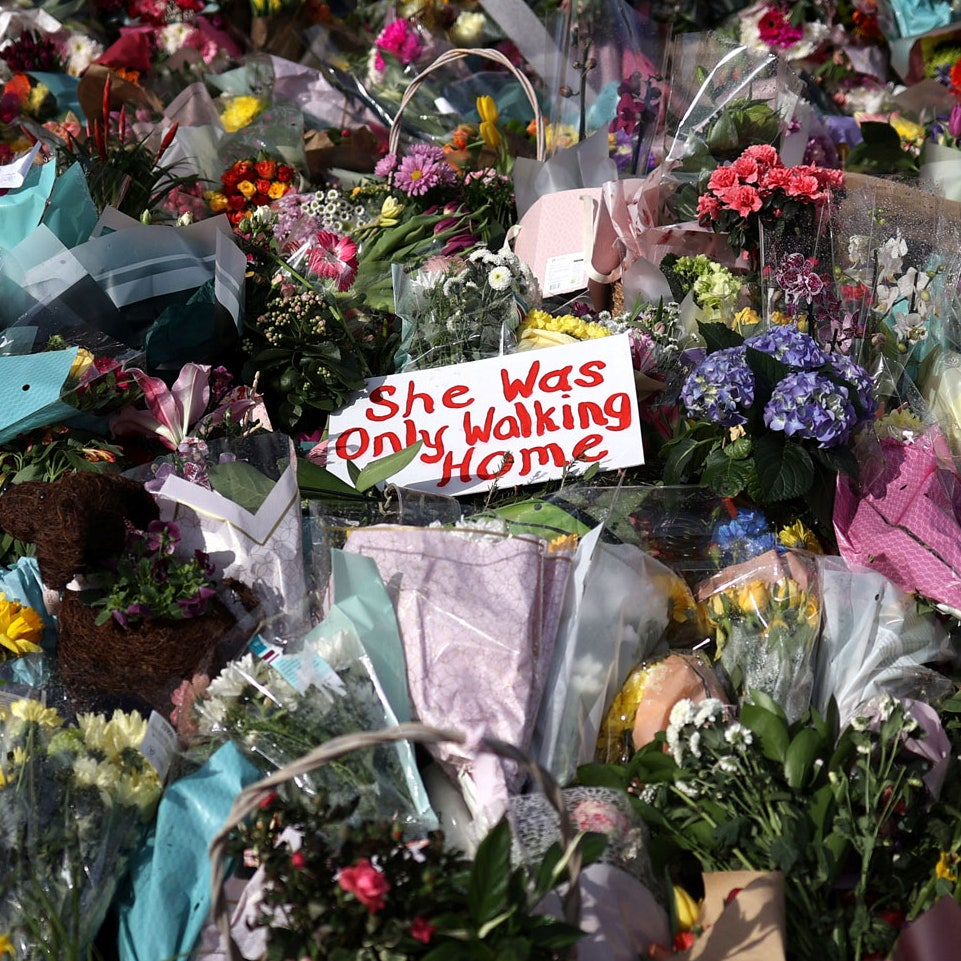 She Was
Only Walking
Home